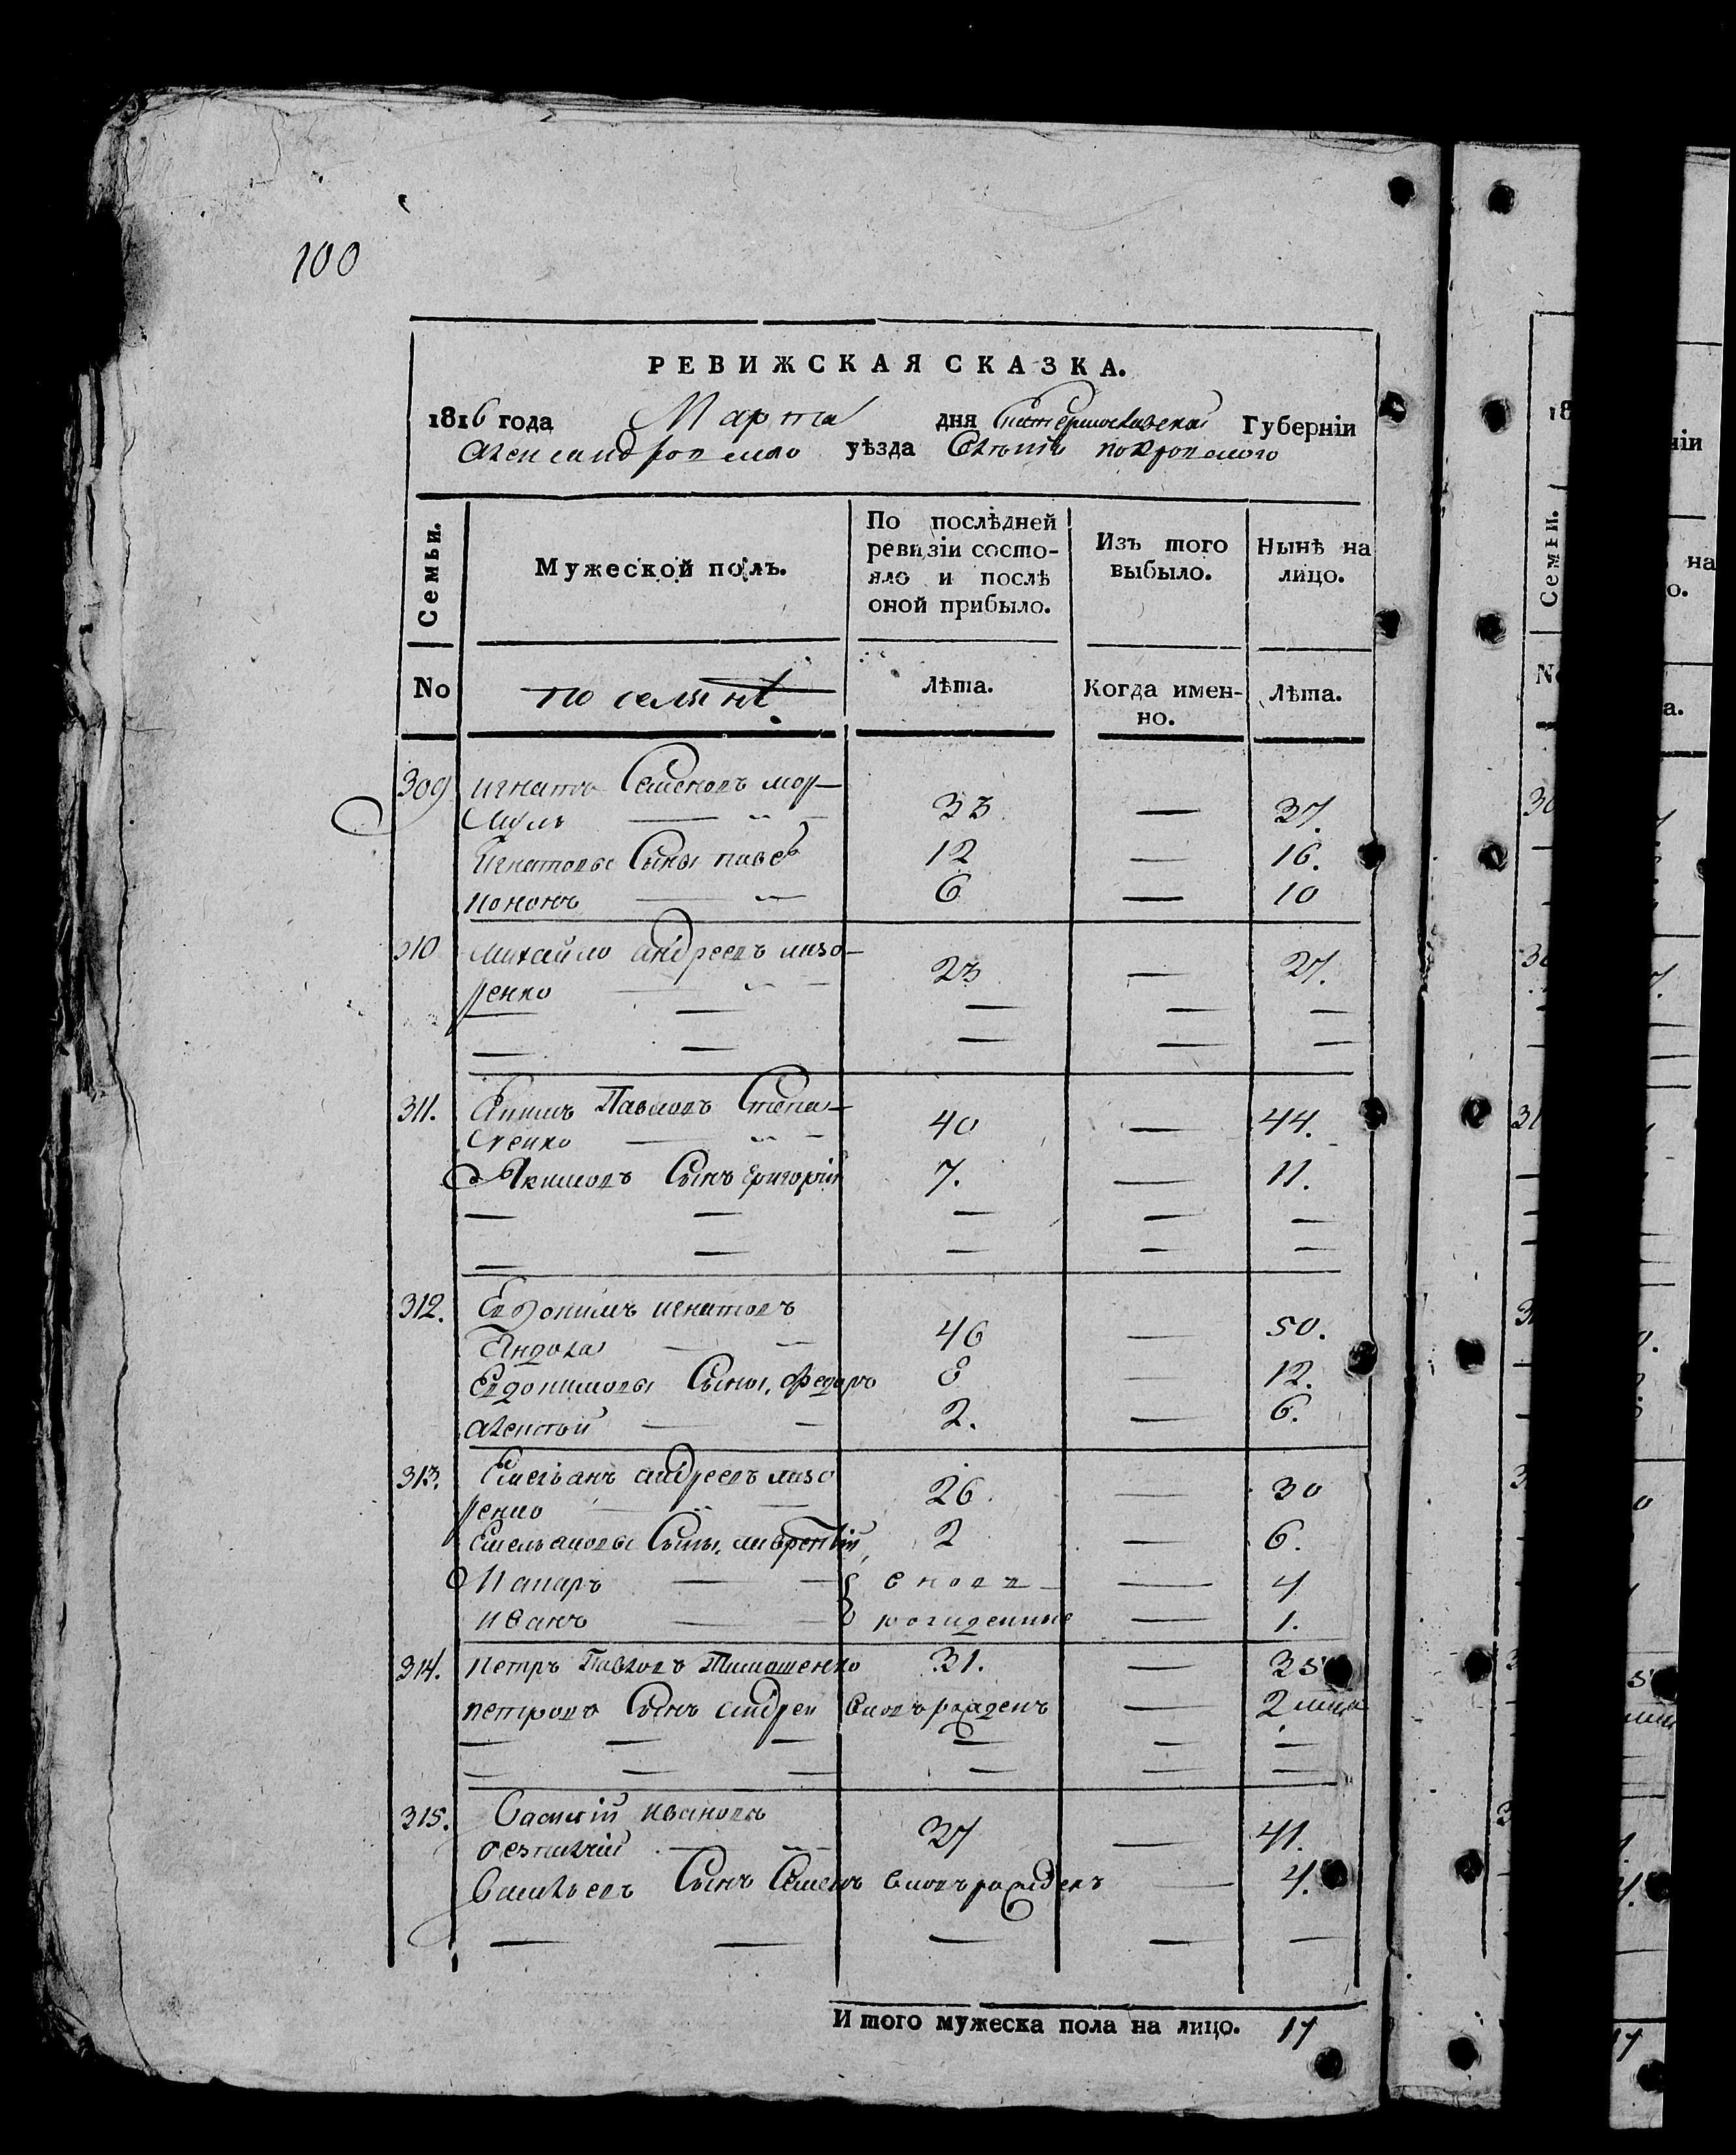 100
РЕВИЖСКАЯ СКАЗКА.
1816 года Марта дня Екатеринославской Губерніи
Александровского уѣзда Селенія покровского
Семьи.
Мужеской полъ.
По послѣдней ревизіи состо-
яло и послѣ оной прибыло.
Изъ того выбыло.
Нынѣ на лицо.
No
Лѣта.
Когда имен-
но.
Лѣта.
309 игнатъ Семеновъ
33 — 37.
Игнатовы Сыны 12 — 16.
кононъ 6 — 10
310 михайло андреевъ лазо-
ренко 23 — 27.
311. Якимъ Павловъ
40 — 44.
Якимовъ Сынъ григорій 7. — 11.
312. Евдокимъ игнатовъ
46 — 50.
Евдокимовы Сыны, федоръ 8 — 12.
алексѣй 2. — 6.
313. Емельянъ андреевъ лазо
ренко 26. — 30
Емельяновы Сыны, лаврентій 2 — 6.
Макаръ вновь — 4
иванъ рожденные — 1.
314. петръ Павловъ Тимошенко 31. — 35
петровъ Сынъ андрей вновь рожденъ — 2
315. Василій ивановъ
37 — 41.
Васильевъ Сынъ Семенъ вновь рожденъ — 4.
И того мужеска пола на лицо. 17